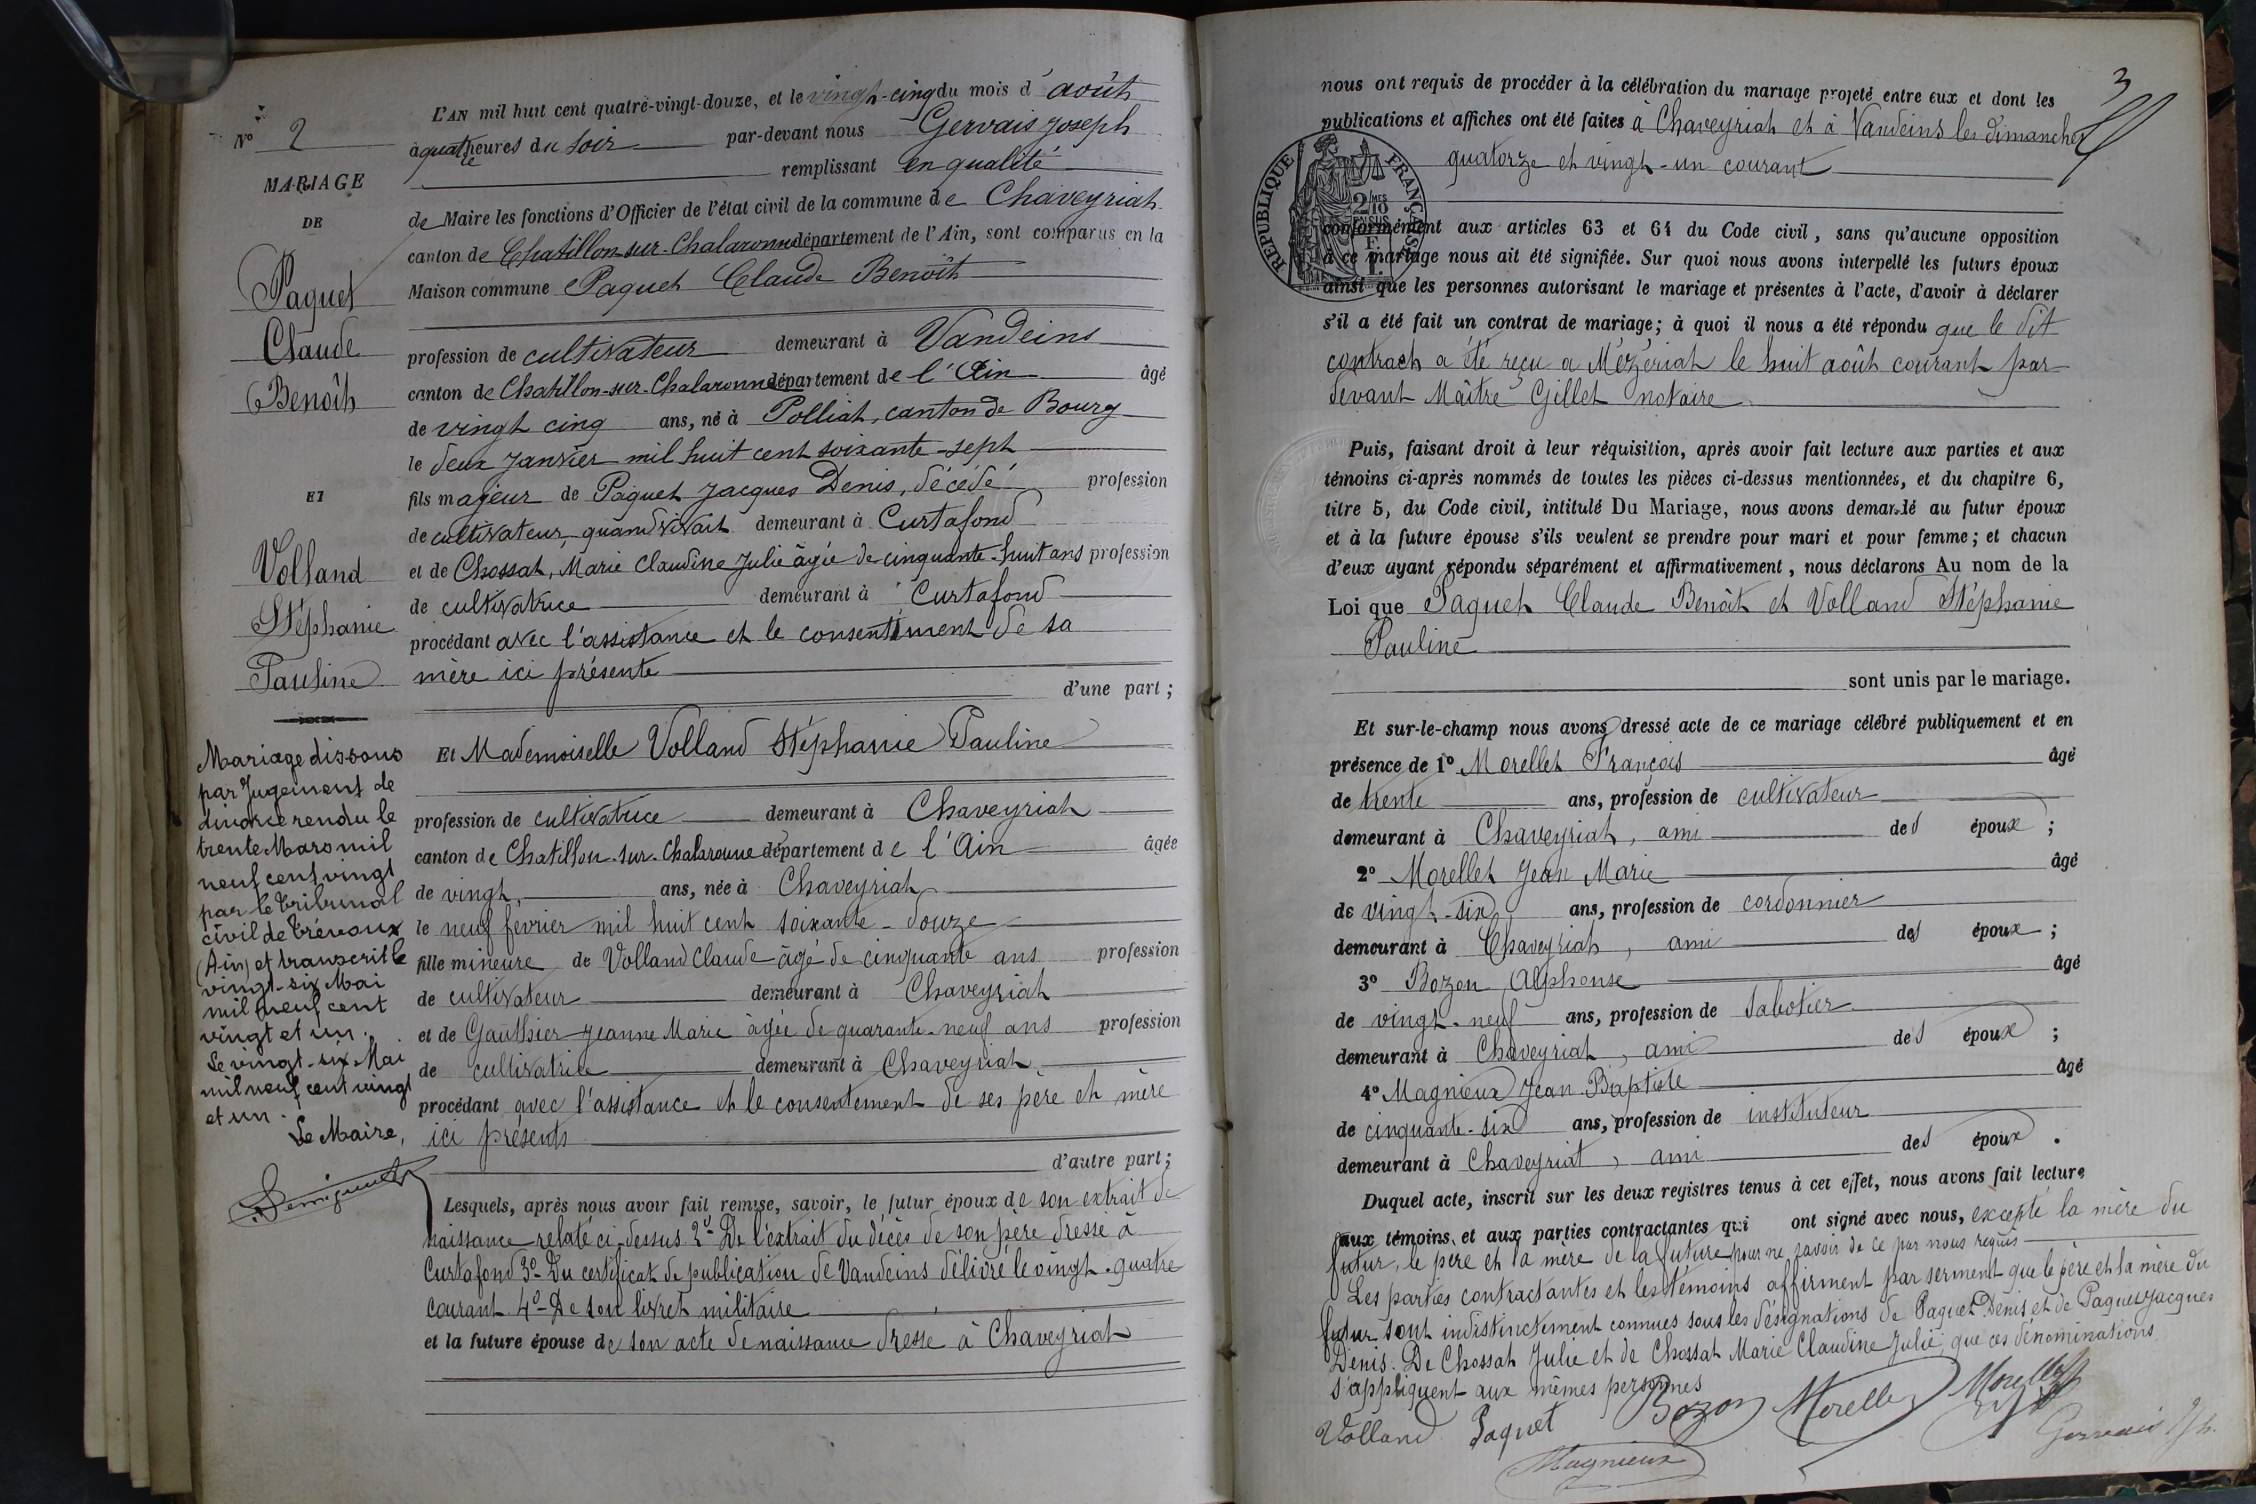 N° 2
MARIAGE
DE
Paquet
Claude
Benoît
ET
Volland
Stéphanie
Pauline
Mariage dissous
par Jugement de
divorce rendu le
trente Mars mil
neuf cent vingt
par le tribunal
civil de Trévoux
(Ain) et transcrit le
vingt-six Mai
mil neuf cent
vingt et un.
Le vingt-six Mai
mil neuf cent vingt
et un.
Le Maire,
L'AN mil huit cent quatre-vingt-douze, et le vingt-cinq du mois d' août
à quatre heures du soir par-devant nous Gervais Joseph
remplissant en qualité
de Maire les fonctions d'Officier de l'état civil de la commune de Chaveyriat
canton de Chatillon-sur-Chalaronne département de l'Ain, sont comparus en la
Maison commune Paquet Claude Benoît
profession de cultivateur demeurant à Vandeins
canton de Chatillon-sur-Chalaronne département de l'Ain âgé
de vingt cinq ans, né à Polliat, canton de Bourg
le deux janvier mil huit cent soixante-sept
fils majeur de Paquet Jacques Denis, décédé profession
de cultivateur, quand vivait demeurant à Curtafond
et de Chossat, Marie Claudine Julie âgée de cinquante-huit ans profession
de cultivatrice demeurant à Curtafond
procédant avec l'assistance et le consentiment de sa
mère ici présente
d'une part ;
Et Mademoiselle Volland Stéphanie Pauline
profession de cultivatrice demeurant à Chaveyriat
canton de Chatillon-sur-Chalaronne département de l'Ain âgée
de vingt, ans, née à Chaveyriat
le neuf fevrier mil huit cent soixante-douze
fille mineure de Volland Claude âgé de cinquante ans profession
de cultivateur demeurant à Chaveyriat
et de Gauthier Jeanne Marie âgée de quarante-neuf ans profession
de cultivatrice demeurant à Chaveyriat
procédant avec l'assistance et le consentement de ses père et mère
ici présents
d'autre part ;
Lesquels, après nous avoir fait remise, savoir, le futur époux de son extrait de
naissance relaté ci-dessus 2° De l'extrait du décès de son père dressé à
Curtafond 3° Du certificat de publication de Vandeins délivré le vingt-quatre
courant 4° De son livret militaire
et la future épouse de son acte de naissance dressé à Chaveyriat
3
nous ont requis de procéder à la célébration du mariage projeté entre eux et dont les
publications et affiches ont été faites à Chaveyriat et à Vandeins les dimanches
quatorze et vingt-un courant
RÉPUBLIQUE FRANÇAISE
conformément aux articles 63 et 64 du Code civil, sans qu'aucune opposition
à ce mariage nous ait été signifiée. Sur quoi nous avons interpellé les futurs époux
ainsi que les personnes autorisant le mariage et présentes à l'acte, d'avoir à déclarer
s'il a été fait un contrat de mariage ; à quoi il nous a été répondu que le dit
contrach a été reçu a Mézériat le huit août courant par-
devant Maître Gillet notaire
Puis, faisant droit à leur réquisition, après avoir fait lecture aux parties et aux
témoins ci-après nommés de toutes les pièces ci-dessus mentionnées, et du chapitre 6,
titre 5, du Code civil, intitulé Du Mariage, nous avons demandé au futur époux
et à la future épouse s'ils veulent se prendre pour mari et pour femme ; et chacun
d'eux ayant répondu séparément et affirmativement, nous déclarons Au nom de la
Loi que Paquet Claude Benoît et Volland Stéphanie
Pauline
sont unis par le mariage.
Et sur-le-champ nous avons dressé acte de ce mariage célébré publiquement et en
présence de 1° Morellet François âgé
de trente ans, profession de cultivateur
demeurant à Chaveyriat, ami des époux ;
2° Morellet Jean Marie âgé
de vingt-six ans, profession de cordonnier
demeurant à Chaveyriat, ami des époux ;
3° Bozon Alphonse âgé
de vingt-neuf ans, profession de sabotier
demeurant à Chaveyriat, ami des époux ;
4° Magnieux Jean Baptiste âgé
de cinquante-six ans, profession de instituteur
demeurant à Chaveyriat, ami des époux.
Duquel acte, inscrit sur les deux registres tenus à cet effet, nous avons fait lecture
aux témoins, et aux parties contractantes qui ont signé avec nous, excepté la mère du
futur, le père et la mère de la future pour ne savoir de ce par nous requis
Les parties contractantes et les témoins affirment par serment que le père et la mère du
futur sont indistinctement connues sous les désignations de Paquet Denis et de Paquet Jacques
Denis. De Chossat Julie et de Chossat Marie Claudine Julie, que ces dénominations
s'appliquent aux mêmes personnes
Volland Paquet Bozon Morellet Morellet
Magnieux Gervais Jh.